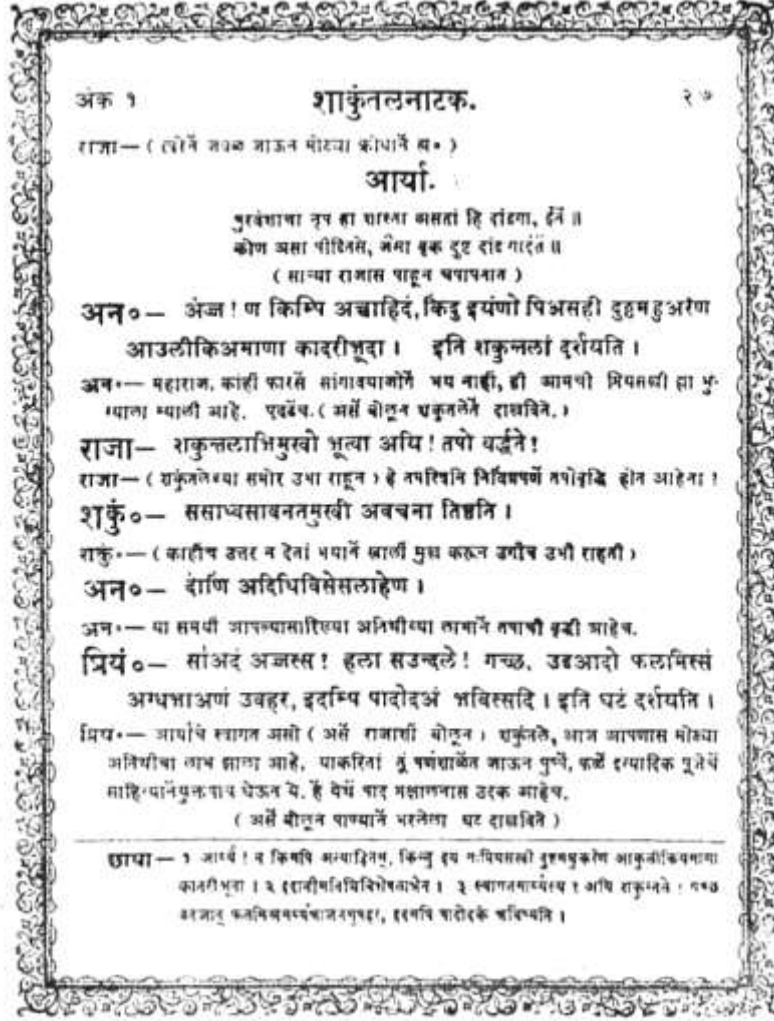 अंक १ शाकुंतलनाटक. २७
राजा— ( त्वरेनें जवळ जाऊन मोठ्या क्रोधानें ह्म॰ )
आर्या.
पुरवंशाचा नृप हा शास्ता असतां हि दांडगा, ईनें ॥
कोण असा पीडितसे, जैसा वृक दुष्ट दांड गाईतें ॥
( साऱ्या राजास पाहून चपापतात )
अन०— अंज्ज ! ण किम्पि अच्चाहिदं, किंदु इयंणो पिअसही दुट्ठमहुअरेण
आउलीकिअमाणा कादरीभूदा । इति शकुन्तलां दर्शयति ।
अन॰— महाराज, कांहीं फारसें सांगावयाजोगें भय नाही, ही आमची प्रियसखी ह्या भुं-
ग्याला भ्याली आहे. एवढेंच. ( असें बोलून शकुंतलेतें दाखविते. )
राजा— शकुन्तलाभिमुखो भूत्वा अयि ! तपो वर्द्धते !
राजा— ( शकुंतलेच्या समोर उभा राहून ) हे तपस्विनि निर्विघ्नपणें तपोवृद्धि होत आहेना !
शकुं०— ससाध्वसावनतमुखी अवचना तिष्ठति ।
शकुं॰— ( कांहींच उत्तर न देतां भयानें खालीं मुख करून उगीच उभी राहती )
अन०— दाणिं अदिधिविसेसलाहेण ।
अन॰— या समयीं आपल्यासारिख्या अतिथीच्या लाभानें तपाची वृद्धी आहेच.
प्रियं०— साअदं अज्जस्स ! हला सउन्दले ! गच्छ. उडआदो फलमिस्सं
अग्घभाअणं उवहर, इदम्पि पादोदअं भविस्सदि । इति घटं दर्शयति ।
प्रियं॰— आर्याचें स्वागत असो ( असें राजाशीं बोलून ) शकुंतले, आज आपणास मोठ्या
अतिथीचा लाभ झाला आहे. याकरितां तूं पर्णशाळेंत जाऊन पुष्पें, फळें इत्यादिक पूजेचें
साहित्यानेंयुक्तपात्र घेऊन ये. हें येथें पाद प्रक्षालनास उदक आहेच.
( असें बोलून पाण्यानें भरलेला घट दाखविते )
छाया— १ आर्य्य ! न किमपि अत्याहितम्, किन्तु इयं नःप्रियसखी दुष्टमधुकरेण आकुलीक्रियमाणा
कातरीभूता । २ इदानीमतिथिविशेषलाभेन । ३ स्वागतमार्य्यस्य ! अयि शकुन्तले ! गच्छ
उटजात् फलमिश्रमर्घ्यभाजनमुपहर, इदमपि पादोदकं भविष्यति ।